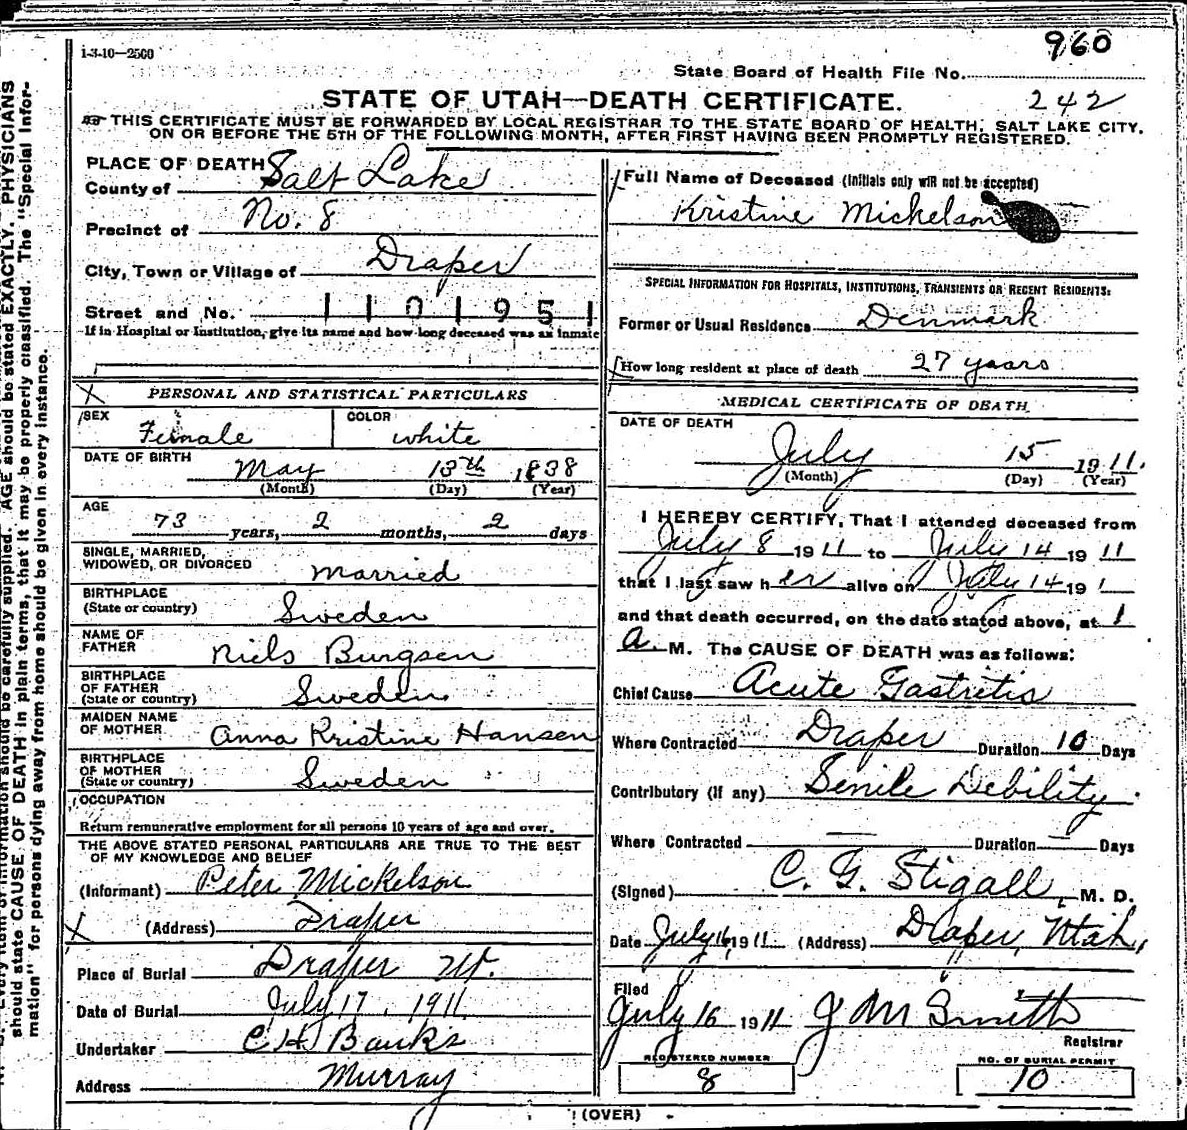 1-3-10—2500
960
State Board of Health File No.
STATE OF UTAH—DEATH CERTIFICATE.
242
THIS CERTIFICATE MUST BE FORWARDED BY LOCAL REGISTRAR TO THE STATE BOARD OF HEALTH, SALT LAKE CITY,
ON OR BEFORE THE 5TH OF THE FOLLOWING MONTH, AFTER FIRST HAVING BEEN PROMPTLY REGISTERED.
PLACE OF DEATH
County of Salt Lake
Precinct of No. 8
City, Town or Village of Draper
Street and No. 1101951
If in Hospital or Institution, give its name and how long deceased was an inmate
PERSONAL AND STATISTICAL PARTICULARS
SEX Female COLOR white
DATE OF BIRTH May 13th 1838
(Month) (Day) (Year)
AGE
73 years, 2 months, 2 days
SINGLE, MARRIED,
WIDOWED, OR DIVORCED Married
BIRTHPLACE
(State or country) Sweden
NAME OF
FATHER Niels Burgsen
BIRTHPLACE
OF FATHER
(State or country) Sweden
MAIDEN NAME
OF MOTHER Anna Kristine Hansen
BIRTHPLACE
OF MOTHER
(State or country) Sweden
OCCUPATION
Return remunerative employment for all persons 10 years of age and over.
THE ABOVE STATED PERSONAL PARTICULARS ARE TRUE TO THE BEST
OF MY KNOWLEDGE AND BELIEF
(Informant) Peter Mickelson
(Address) Draper
Place of Burial Draper Ut.
Date of Burial July 17, 1911
Undertaker C H Banks
Address Murray
Full Name of Deceased (Initials only will not be accepted)
Kristine Mickelson
SPECIAL INFORMATION FOR HOSPITALS, INSTITUTIONS, TRANSIENTS OR RECENT RESIDENTS:
Former or Usual Residence Denmark
How long resident at place of death 27 years
MEDICAL CERTIFICATE OF DEATH
DATE OF DEATH
July 15 1911.
(Month) (Day) (Year)
I HEREBY CERTIFY, That I attended deceased from
July 8 1911 to July 14 1911
that I last saw her alive on July 14 191
and that death occurred, on the date stated above, at 1
a. M. The CAUSE OF DEATH was as follows:
Chief Cause Acute Gastritis
Where Contracted Draper Duration 10 Days
Contributory (if any) Senile Debility
Where Contracted — Duration — Days
(Signed) C. G. Stigall, M. D.
Date July 16 1911 (Address) Draper, Utah,
Filed
July 16 1911 J M Smith
Registrar
REGISTERED NUMBER
8
NO. OF BURIAL PERMIT
10
(OVER)
should state CAUSE OF DEATH in plain terms, that it may be properly classified. The "Special Infor-
mation" for persons dying away from home should be given in every instance.